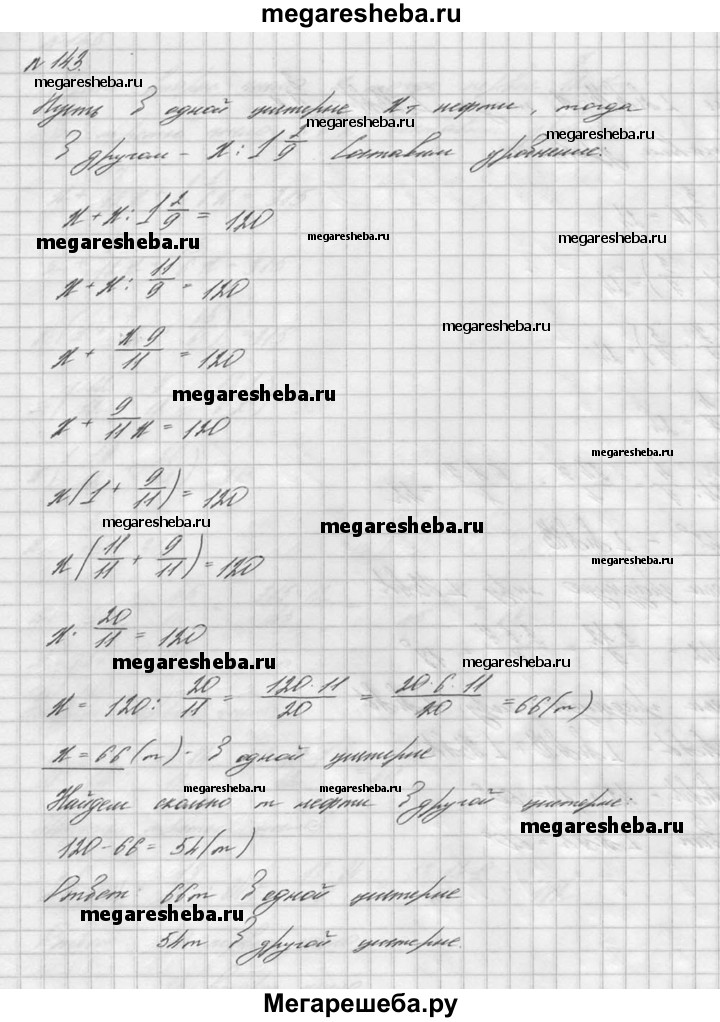 megaresheba.ru
№ 143.
megaresheba.ru
Пусть в одной цистерне x т нефти, тогда
megaresheba.ru megaresheba.ru
в другой - x : 1 2/9. Составим уравнение:
x + x : 1 2/9 = 120
megaresheba.ru megaresheba.ru megaresheba.ru
x + x : 11/9 = 120
x + x·9/11 = 120
megaresheba.ru
megaresheba.ru
x + 9/11 x = 120
megaresheba.ru
x(1 + 9/11) = 120
megaresheba.ru megaresheba.ru
x(11/11 + 9/11) = 120
megaresheba.ru
x · 20/11 = 120
megaresheba.ru megaresheba.ru
x = 120 : 20/11 = 120·11/20 = 20·6·11/20 = 66 (т)
x = 66 (т) - в одной цистерне
megaresheba.ru megaresheba.ru megaresheba.ru
Найдем сколько т нефти в другой цистерне:
megaresheba.ru
120 - 66 = 54 (т)
Ответ: 66 т в одной цистерне
megaresheba.ru
54 т в другой цистерне.
Мегарешеба.ру